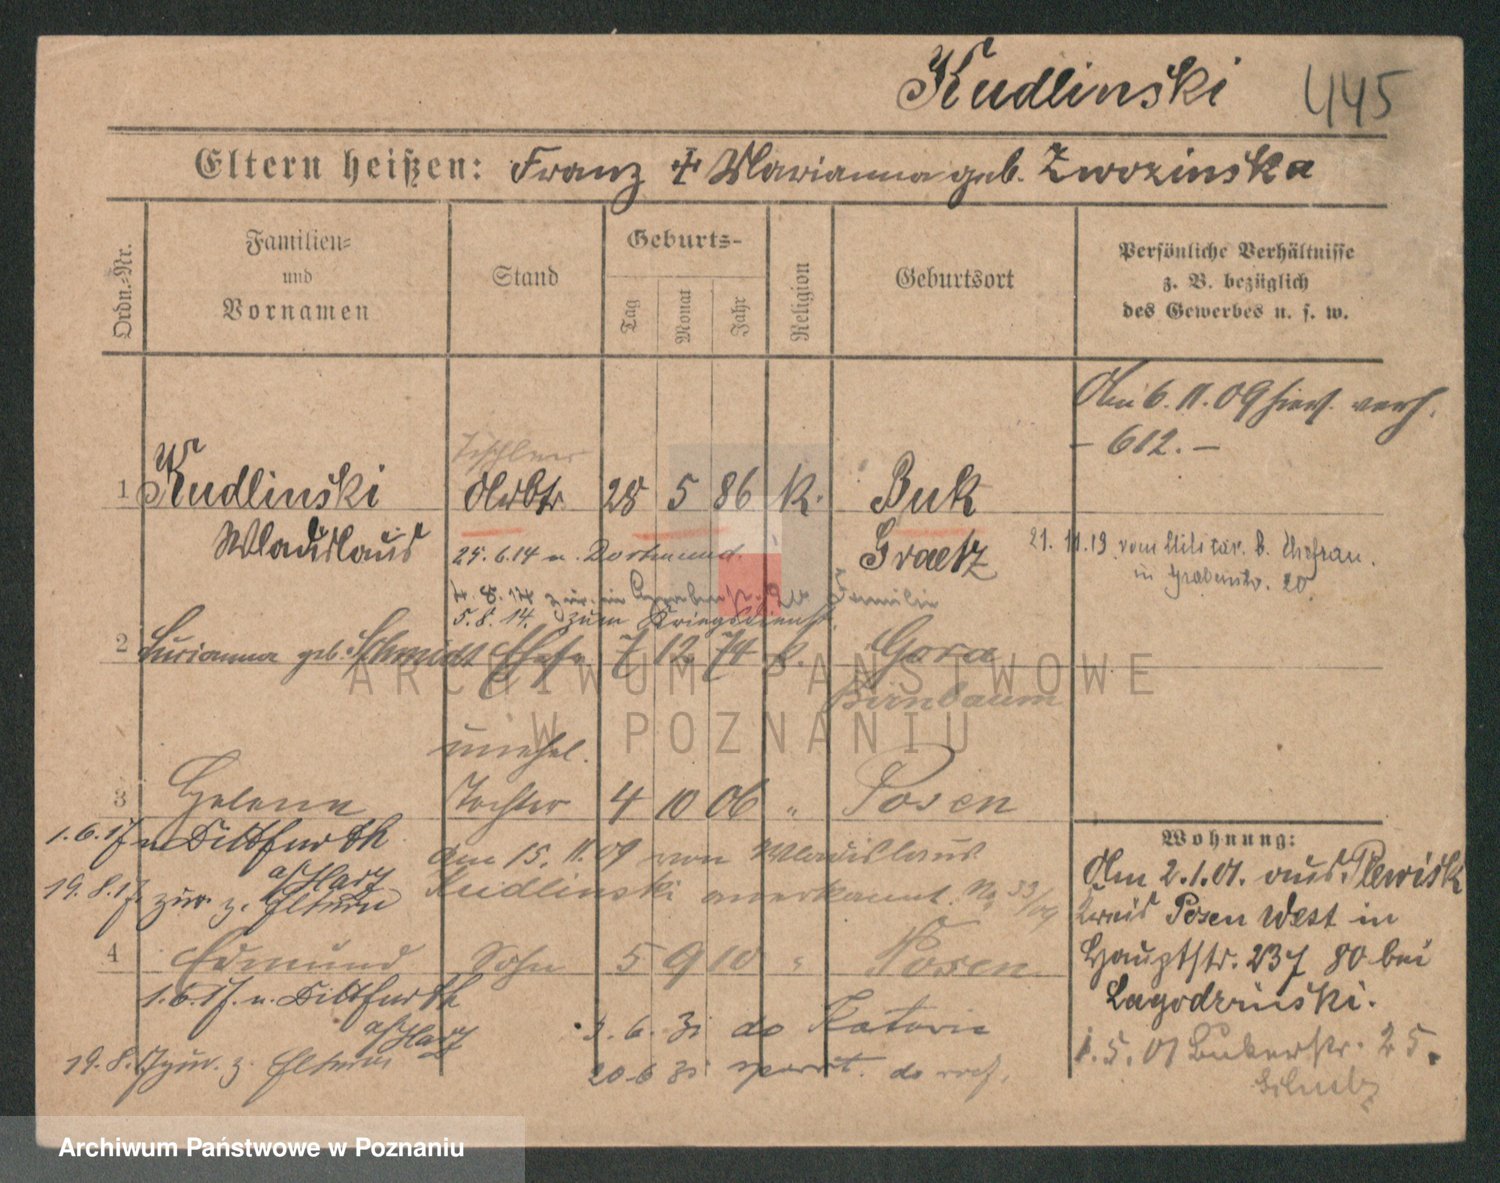 Kudlinski 445
Eltern heißen: Franz + Marianna geb. Zwozinska
Ordn.-Nr.
Familien-
und
Vornamen
Stand
Geburts-
Tag
Monat
Jahr
Religion
Geburtsort
Persönliche Verhältnisse
z. B. bezüglich
des Gewerbes u. s. w.
6.11.09 verh.
- 612. -
Tischler
1 Kudlinski Arbtr 28 5 86 K. Buk
Wladislaus
Graetz
25.6.14 n. Dortmund.
21.11.19 vom Militär. b. Ehefrau.
in Grabenstr. 20
4.8.14 zur. in Grabenstr. 20 Familie
5.8.14. zum Kriegsdienst.
2 Marianna geb. Schmidt Ehefr 7 12 74 k. Gora
Birnbaum
unehel.
3 Helena Tochter 4 10 06 " Posen
1.6.17 n Ditfurth
a/Harz
19.8.17 zur. z. Eltern
Am 15.11.09 von Wladislaus
Kudlinski anerkannt. No 53/09
4 Edmund Sohn 5 9 10 " Posen
1.6.17. n. Ditfurth
a/Harz
19.8.17 zur. z. Eltern
3.6.31 do Katowic
20 6 31 do
Wohnung:
Am 2.1.01. aus Plewisk
Kreis Posen West in
Hauptstr. 237 80 bei
Lagodzinski.
1.5.01 Bukerstr. 25.
ARCHIWUM PAŃSTWOWE
W POZNANIU
Archiwum Państwowe w Poznaniu